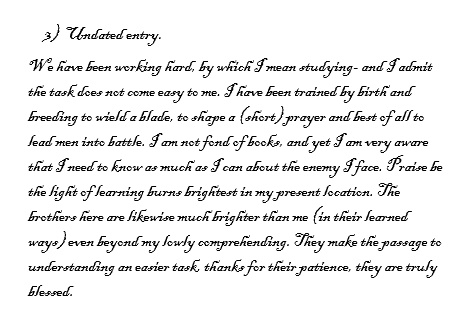 3) Undated entry.
We have been working hard, by which I mean studying- and I admit
the task does not come easy to me. I have been trained by birth and
breeding to wield a blade, to shape a (short) prayer and best of all to
lead men into battle. I am not fond of books, and yet I am very aware
that I need to know as much as I can about the enemy I face. Praise be
the light of learning burns brightest in my present location. The
brothers here are likewise much brighter than me (in their learned
ways) even beyond my lowly comprehending. They make the passage to
understanding an easier task, thanks for their patience, they are truly
blessed.